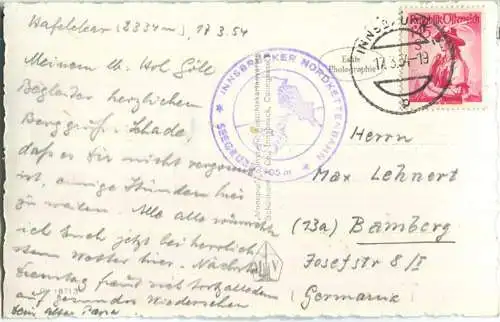 Hafelekar (2334 m), 17.3.54
Meinem lb. Hol. Göll
Begleiter herzlichen
Berggruß. Schade,
daß es Dir nicht vergönnt
ist, einige Stunden hier
zu weilen. Alle alle wünschte
ich Euch jetzt bei herrlich
stem Wetter hier. Nächsten
Dienstag freut sich vor allem
auf gesundes Wiedersehen
Dein alter Papa
18713
★ INNSBRUCKER NORDKETTENBAHN ★
SEEGRUBE 1905 m
Echte
Photographie
INNSBRUCK
17.3.54-19
Republik Österreich
Herrn
Max Lehnert
(13a) Bamberg
Josefstr 8/II
Germania